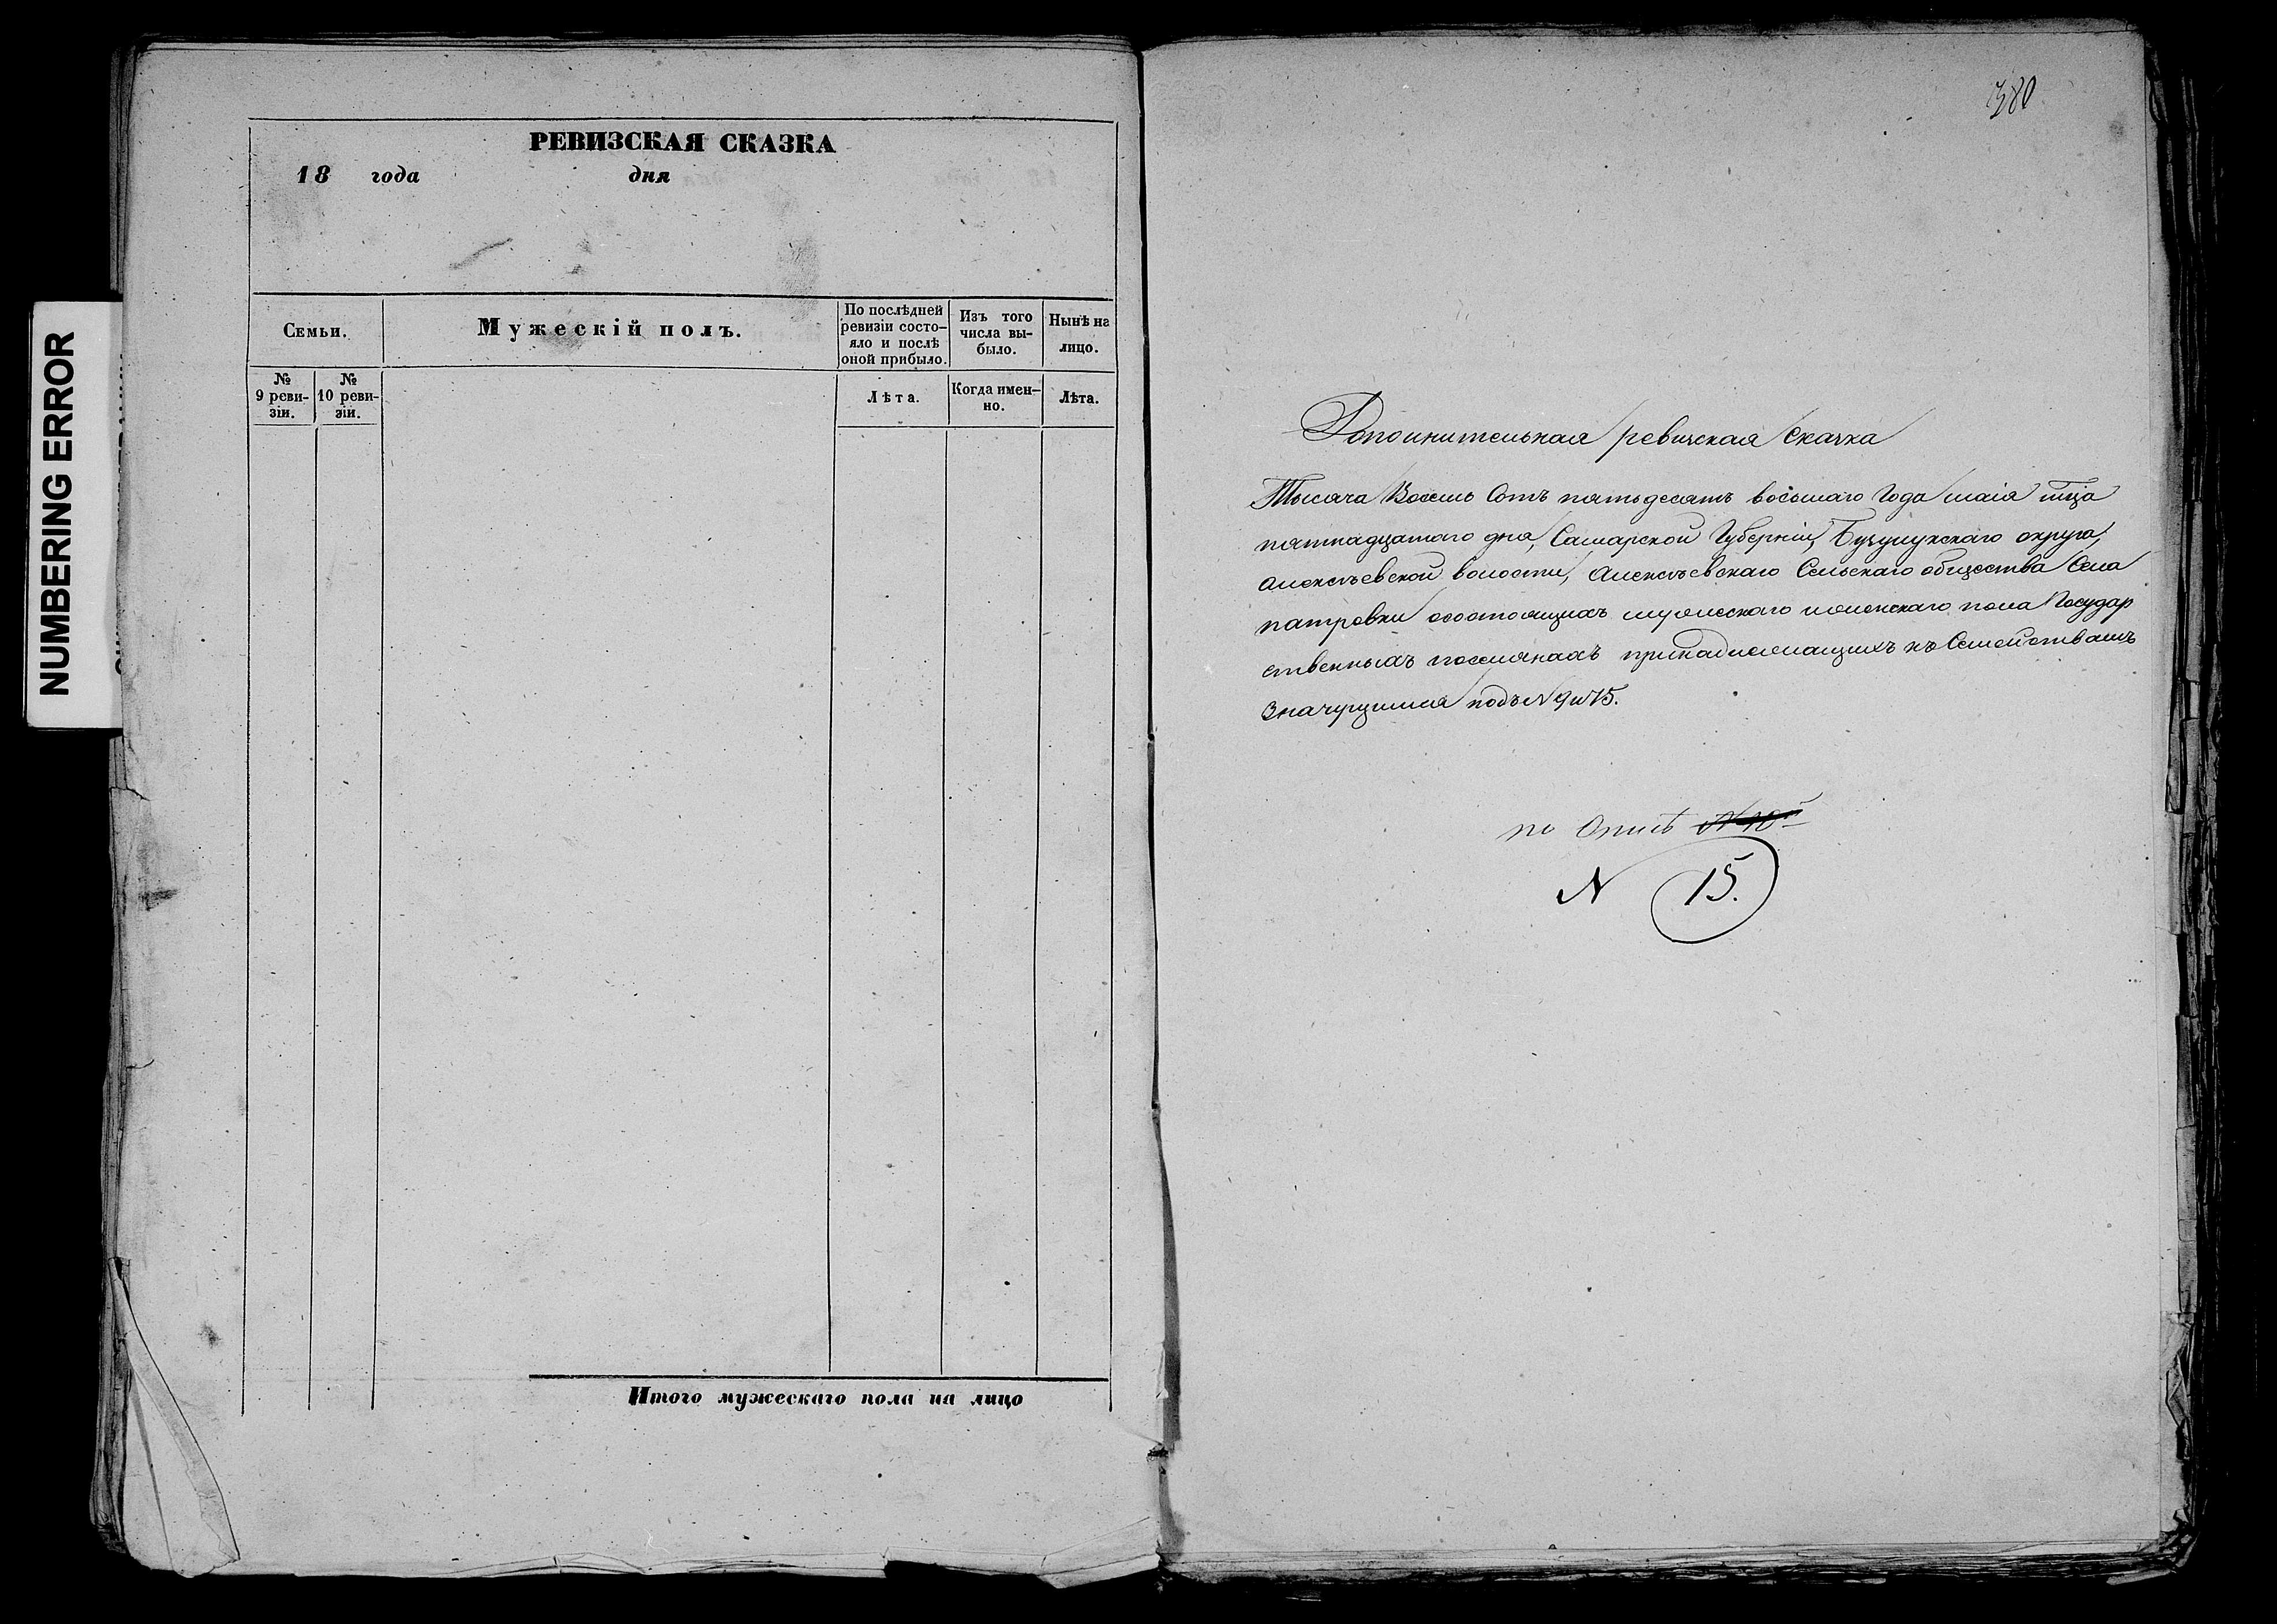 NUMBERING ERROR
РЕВИЗСКАЯ СКАЗКА
18 года дня
Семьи.
Мужескій полъ.
По послѣдней
ревизіи состо-
яло и послѣ
оной прибыло.
Изъ того
числа вы-
было.
Нынѣ на
лицо.
№
9 реви-
зіи.
№
10 реви-
зіи.
Лѣта.
Когда имен-
но.
Лѣта.
Итого мужескаго пола на лицо
380
Дополнительная ревизская сказка
Тысяча Восемь Сотъ пятьдесятъ восьмаго Года маія мца
пятнадцатого дня, Самарской Губерніи, Бузулукскаго округа,
алексѣевской волости, алексѣевскаго Сельскаго общества Села
патровки осостоящихъ мужескаго иженскаго пола Государ
ственныхъ поселянахъ принадлежащихъ къ Семействамъ
Значущимся подъ N 9 и 15.
по Описѣ
N 15.